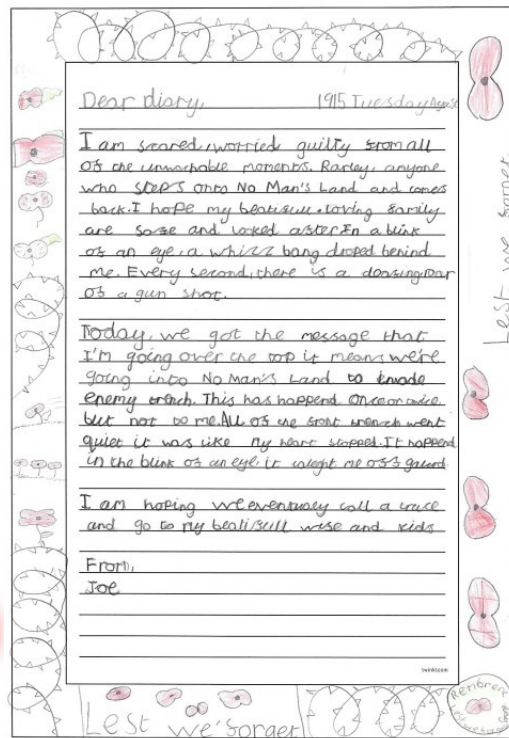 Dear diary, 1915 Tuesday August
I am scared, worried guilty from all
of the unwachable moments. Rarley, anyone
who steps onto No Man's Land and comes
back. I hope my beatifull, loving family
are safe and looked after. In a blink
of an eye, a whizz bang droped behind
me. Every second, there is a deafing roar
of a gun shot.
Today, we got the message that
I'm going over the top it means we're
going into No Man's Land to invade
enemy trench. This has happend once or twice
but not to me. All of the front trench went
quiet it was like my heart stopped. It happend
in the blink of an eye, it caught me off gaurd.
I am hoping we eventualy call a truce
and go to my beatifull wife and kids
From,
Joe
twinkl.com
Lest we forget
Lest we forget